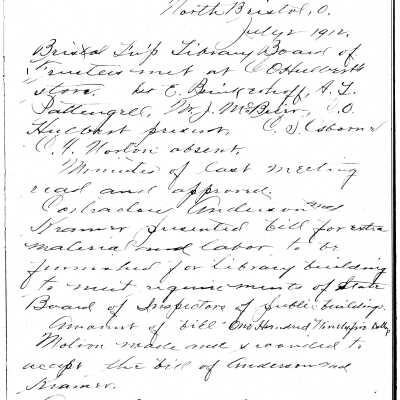 North Bristol, O.
July 2 1912.
Bristol Twp Library Board of
Trustees met at C O Hulbert's
store. E. Brinkerhoff, A. L.
Pattengell, W. J. McBride, C. O.
Hulbert present, C. S. Osborn &
C. H. Norton absent.
Minutes of last meeting
read and approved.
Contractors Anderson and
Kramer presented bill for extra
material and labor to be
furnished for library building
to meet requirements of State
Board of Inspectors of public building.
Amount of bill One Hundred Ninety five Dollars
Motion made and seconded to
accept the bill of Anderson and
Kramer.